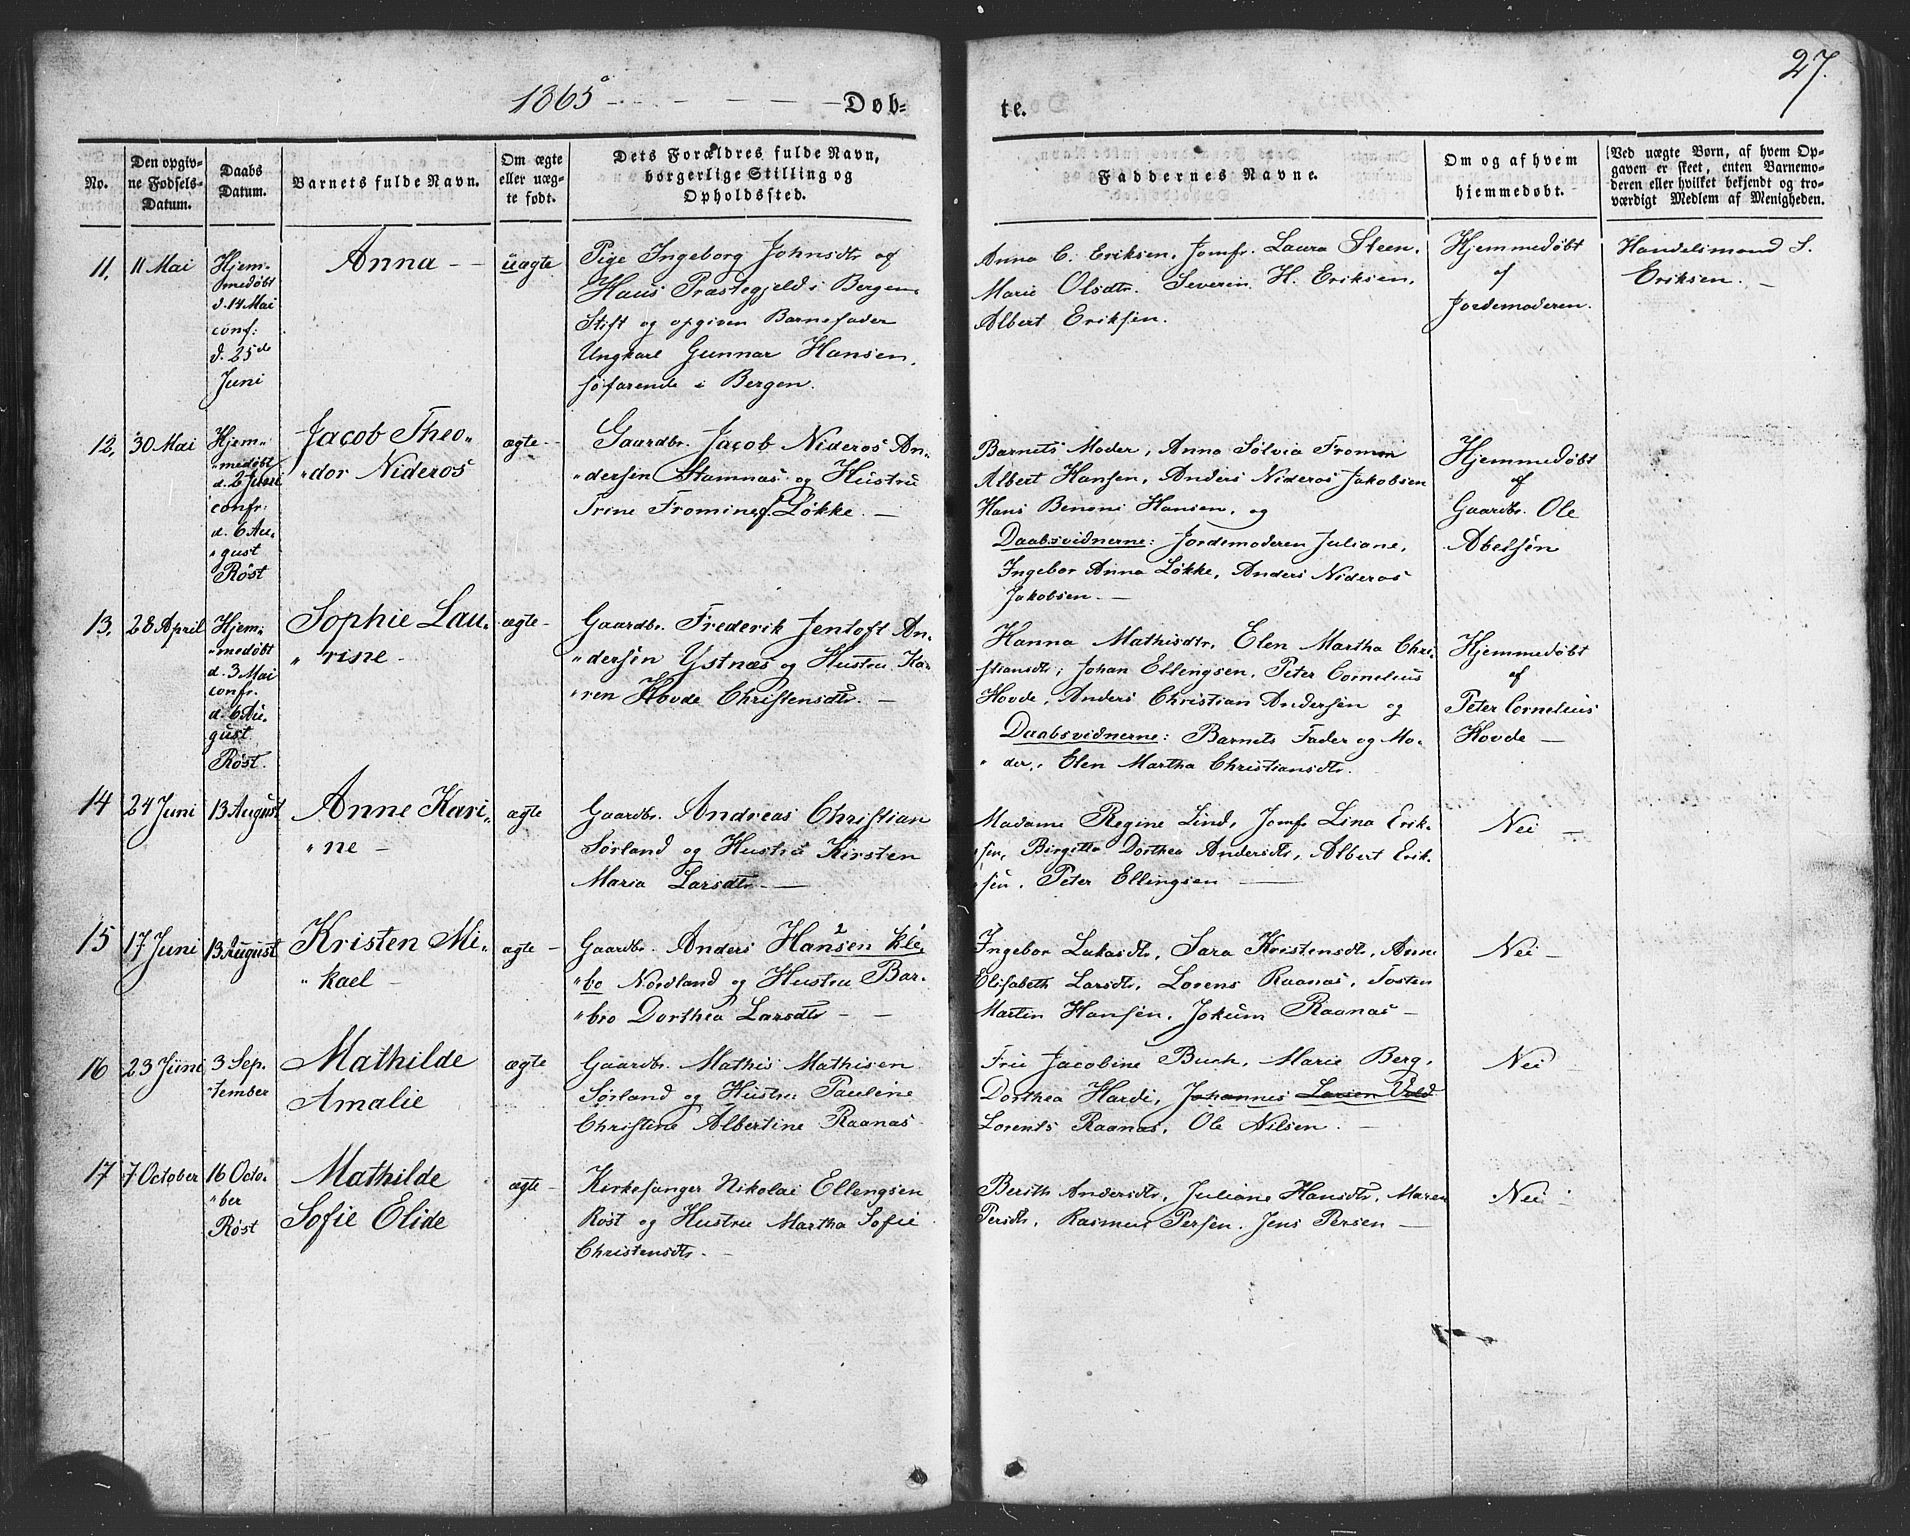 27.
1865 - - - - Døb-
te.
No.
Den opgiv-
ne Fødsels-
Datum.
Daabs
Datum.
Barnets fulde Navn.
Om ægte
eller uæg-
te født.
Dets Forældres fulde Navn,
borgerlige Stilling og
Opholdssted.
Faddernes Navne.
Om og af hvem
hjemmedøbt.
(Ved uægte Børn, af hvem Op-
gaven er skeet, enten Barnemo-
deren eller hvilket bekjendt og tro-
værdigt Medlem af Menigheden.
11.
11 Mai
Hjem-
medøbt
d. 14 Mai
conf:
d. 25de
Juni
Anna - -
uægte
Pige Ingeborg Johnsdtr af
Haus Præstegjeld i Bergens
Stift og opgiven Barnefader
Ungkarl Gunnar Hansen,
søfarende i Bergen.
Anna C. Eriksen, Jomfr. Laura Steen,
Marie Olsdtr. Severin H. Eriksen,
Albert Eriksen.
Hjemmedøbt
af
Jordemoderen.
Handelsmand S.
Eriksen. -
12,
30 Mai
Hjem-
"medøbt
d. 2 Juni
confr:
d. 6 Au-
"gust
Røst
Jacob Theo-
"dor Nideros
ægte -
Gaardbr. Jacob Nideros An-
"dersen Stamnas og Hustru
Trine Fromine f. Løkke. -
Barnets Moder, Anna Sølvia Fromin
Albert Hansen, Anders Nideros Jakobsen
Hans Benoni Hansen, og
Daabsvidnerne: Jordemoderen Juliane,
Ingebor Anna Løkke, Anders Nideros
Jakobsen. -
Hjemmedøbt
af
Gaardbr. Ole
Abelsen
13,
28 April
Hjem-
"medøbt
d. 3 Mai
confr.
d. 6 Au-
gust
Røst.
Sophie Lau-
"rine -
ægte -
Gaardbr. Frederik Jentoft An-
"dersen Ystnæs og Hustru Ka-
"ren Hovde Christensdtr. -
Hanna Mathisdtr, Elen Martha Chri-
stiansdtr, Johan Ellingsen, Peter Cornelius
Hovde, Anders Christian Andersen og
Daabsvidnerne: Barnets Fader og Mo-
"der, Elen Martha Christiansdtr.
Hjemmedøbt
af
Peter Cornelius
Hovde -
14
24 Juni
13 August
Anne Kari-
"ne -
ægte
Gaardbr. Andreas Christian
Sørland og Hustru Kirsten
Maria Larsdtr. -
Madame Regine Lind, Jomfr Lina Erik-
"sen, Birgitta Dorthea Andersdtr, Albert Erik-
"sen, Peter Ellingsen -
Nei -
15
17 Juni
13 August
Kristen Mi-
"kael -
ægte -
Gaardbr. Anders Hansen Kle-
"bo Nordland og Hustru Bar-
"bro Dorthea Larsdtr - -
Ingebor Lukasdtr, Sara Kristensdtr, Anne
Elisabeth Larsdtr, Lorens Raanas, Tosten
Martin Hansen, Jokum Raanas -
Nei -
16
23 Juni
3 Sep-
"tember
Mathilde
Amalie
ægte
Gaardbr. Mathis Mathisen
Sørland og Hustru Pauline
Christine Albertine Raanas
Fru Jacobine Buch, Marie Berg,
Dorthea Hardi, Johannes Larsen Vold
Lorents Raanas, Ole Nilsen. -
Nei -
17
7 October
16 Octo-
"ber
Røst
Mathilde
Sofie Elide
ægte -
Kirkesanger Nikolai Ellingsen
Røst og Hustru Martha Sofie
Christensdtr. -
Berith Andersdtr, Juliane Hansdtr, Maren
Persdtr, Rasmus Persen, Jens Persen -
Nei -